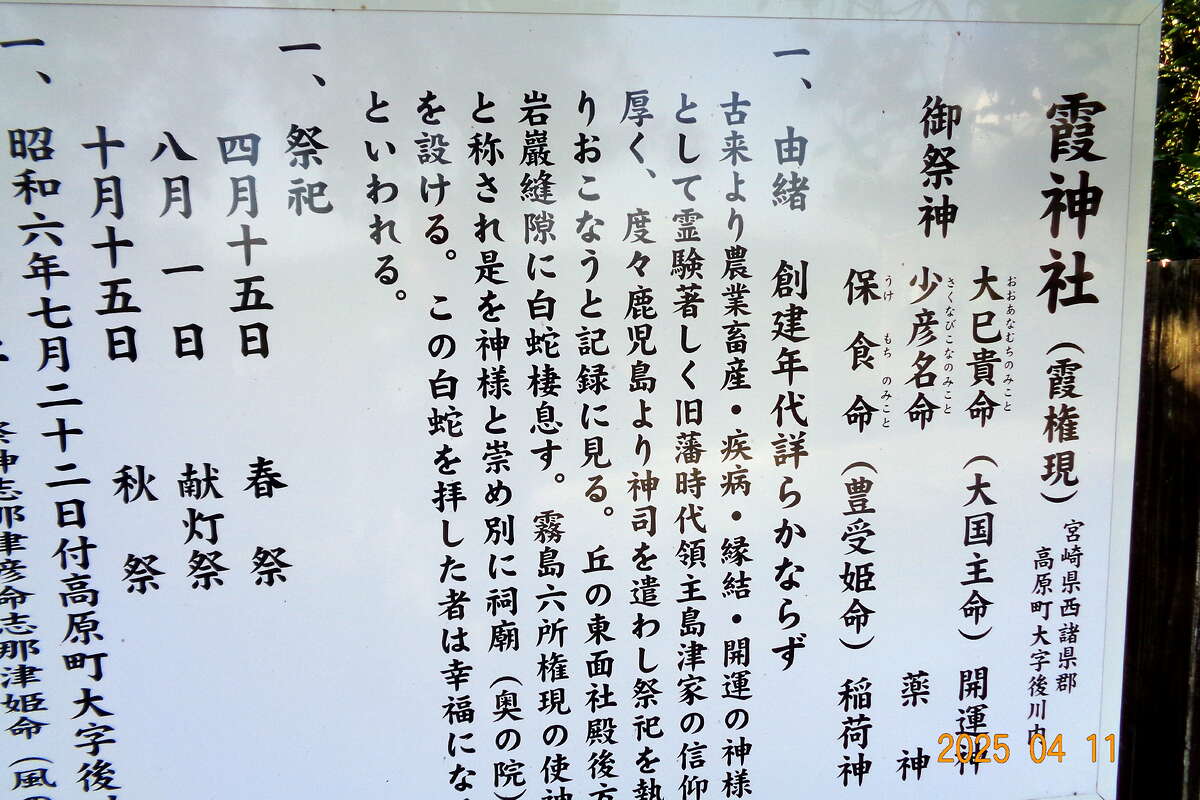 霞神社(霞権現)
宮崎県西諸県郡
高原町大字後川内
御祭神
大巳貴命(大国主命) 開運神
おおあなむちのみこと
少彦名命 薬神
さくなびこなのみこと
保食命(豊受姫命) 稲荷神
うけもちのみこと
一、由緒 創建年代詳らかならず
古来より農業畜産・疾病・縁結・開運の神様
として霊験著しく旧藩時代領主島津家の信仰
厚く、度々鹿児島より神司を遣わし祭祀を執
りおこなうと記録に見る。丘の東面社殿後方
岩巖縫隙に白蛇棲息す。霧島六所権現の使神
と称され是を神様と崇め別に祠廟(奥の院)
を設ける。この白蛇を拝した者は幸福にな
といわれる。
一、祭祀
四月十五日 春祭
八月一日 献灯祭
十月十五日 秋祭
一、昭和六年七月二十二日付高原町大字後
祭神志那津彦命志那津姫命(風の
2025 04 11